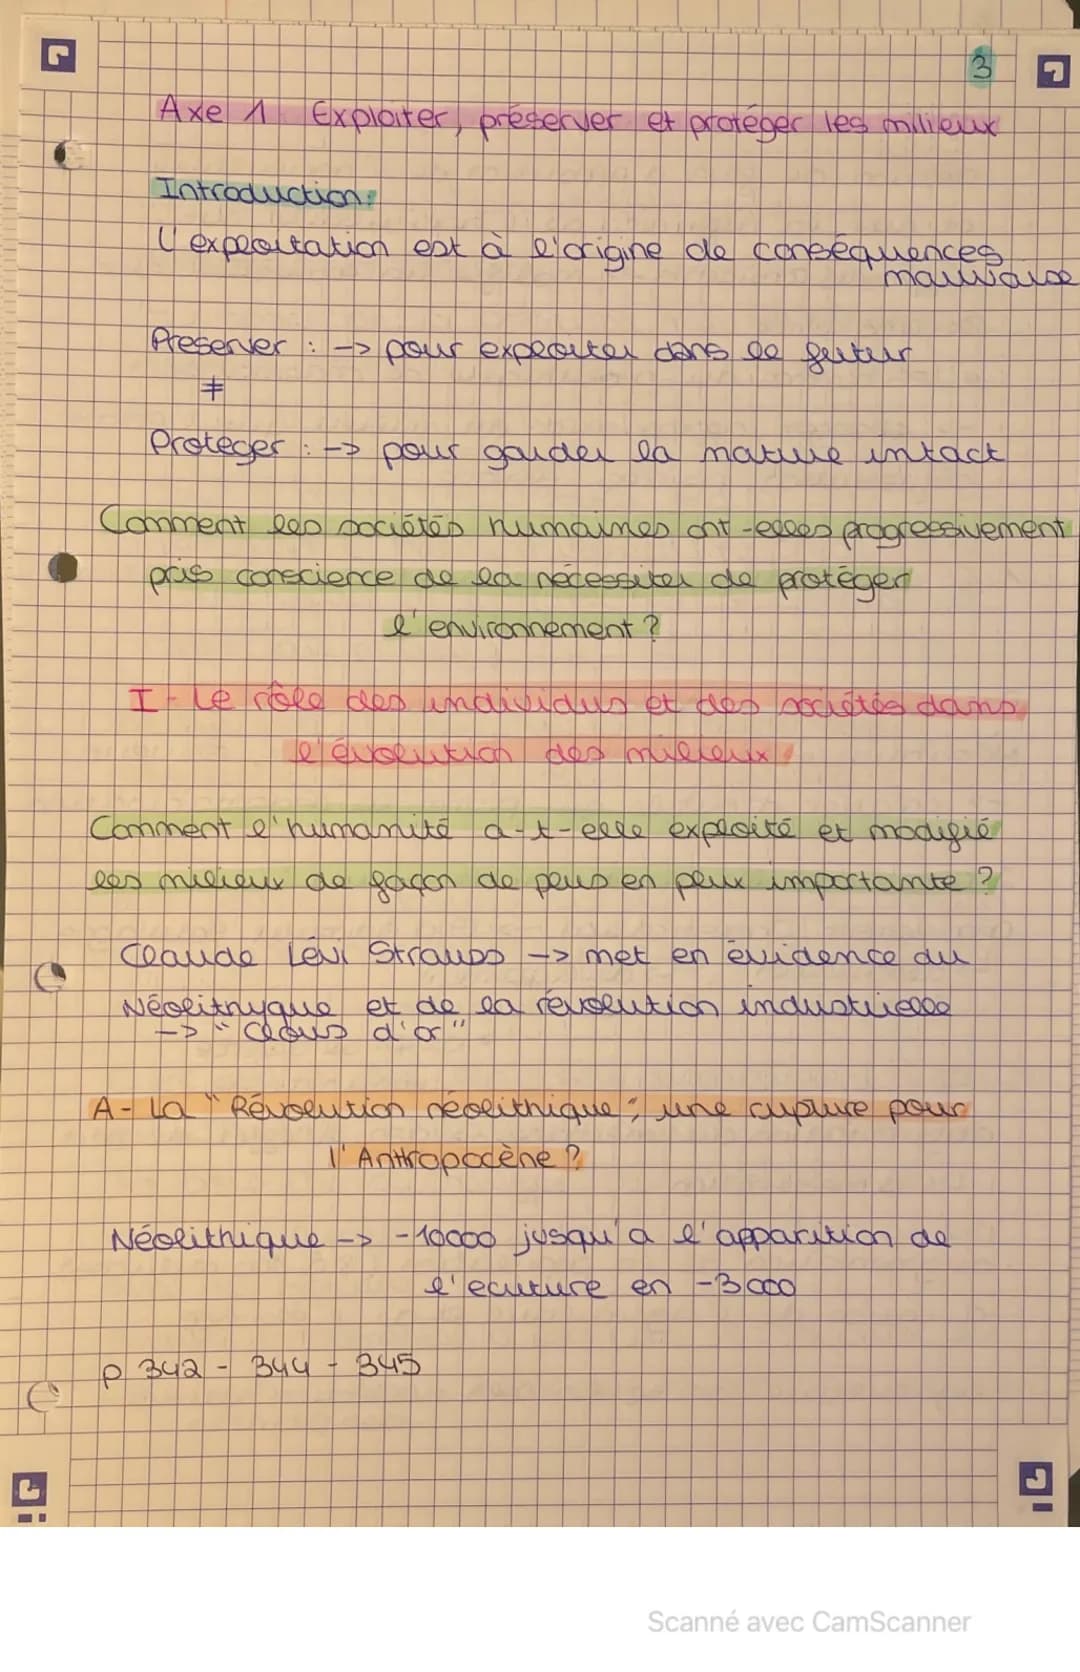 3
Axe 1 Exploiter, préserver et protéger les milieux
Introduction:
L'exploitation est à l'origine de conséquences
mauvaise
Préserver : -> pour exploiter dans le futur
≠
Protéger : -> pour garder la nature intact
Comment les sociétés humaines ont-elles progressivement
pris conscience de la nécessiter de protéger
l'environnement ?
I - Le rôle des individus et des sociétés dans
l'évolution des milieux
Comment l'humanité a-t-elle exploité et modifié
les milieux de façon de plus en plux importante ?
Claude Lévi Strauss -> met en évidence du
Néolithyque et de la révolution industrielle
-> "Clous d'or"
A- La "Révolution néolithique", une rupture pour
l'Anthropocène ?
Néolithique -> -10000 jusqu'a l'apparition de
l'écriture en -3000
p 342 - 344 - 345
Scanné avec CamScanner